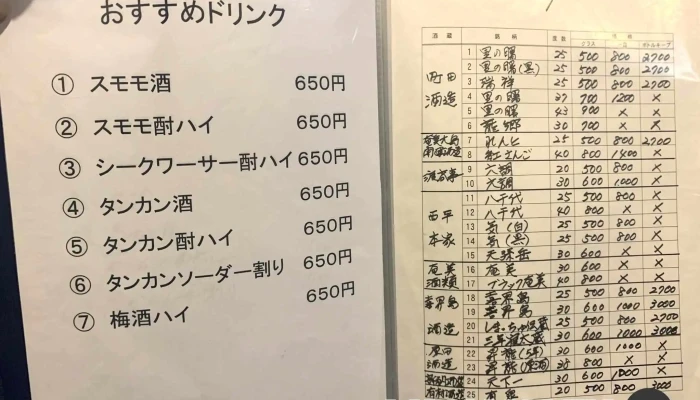 おすすめドリンク
① スモモ酒 650円
② スモモ酎ハイ 650円
③ シークワーサー酎ハイ 650円
④ タンカン酒 650円
⑤ タンカン酎ハイ 650円
⑥ タンカンソーダー割り 650円
⑦ 梅酒ハイ 650円
酒蔵 銘柄 度数 価格
グラス 一合 ボトルキープ
町田酒造
1 里の曙 25 500 800 2700
2 里の曙(黒) 25 500 800 2700
3 瑞祥 25 500 800 2700
4 里の曙 37 700 1200 ×
5 里の曙 43 900 × ×
6 龍郷 30 700 × ×
7 れんと 25 500 800 2700
8 紅さんご 40 800 1400 ×
9 20 500 800 ×
10 30 600 1000 ×
西平本家
11 八千代 25 500 800 ×
12 八千代 40 800 × ×
13 気(白) 25 500 800 ×
14 気(黒) 25 500 800 ×
15 天孫岳 30 600 × ×
奄美酒類
16 奄美 30 600 × ×
17 ブラック奄美 40 800 × ×
喜界島酒造
18 喜界島 25 500 800 2700
19 喜界島 30 600 1000 3000
20 しまっちゅ伝蔵 25 500 800 2700
21 三年寝太蔵 30 600 1000 3000
原田酒造
22 昇龍(5年) 30 600 1000 ×
23 昇龍(原酒) 800 × ×
24 天下一 30 600 1000 ×
25 有泉 20 500 800 3000